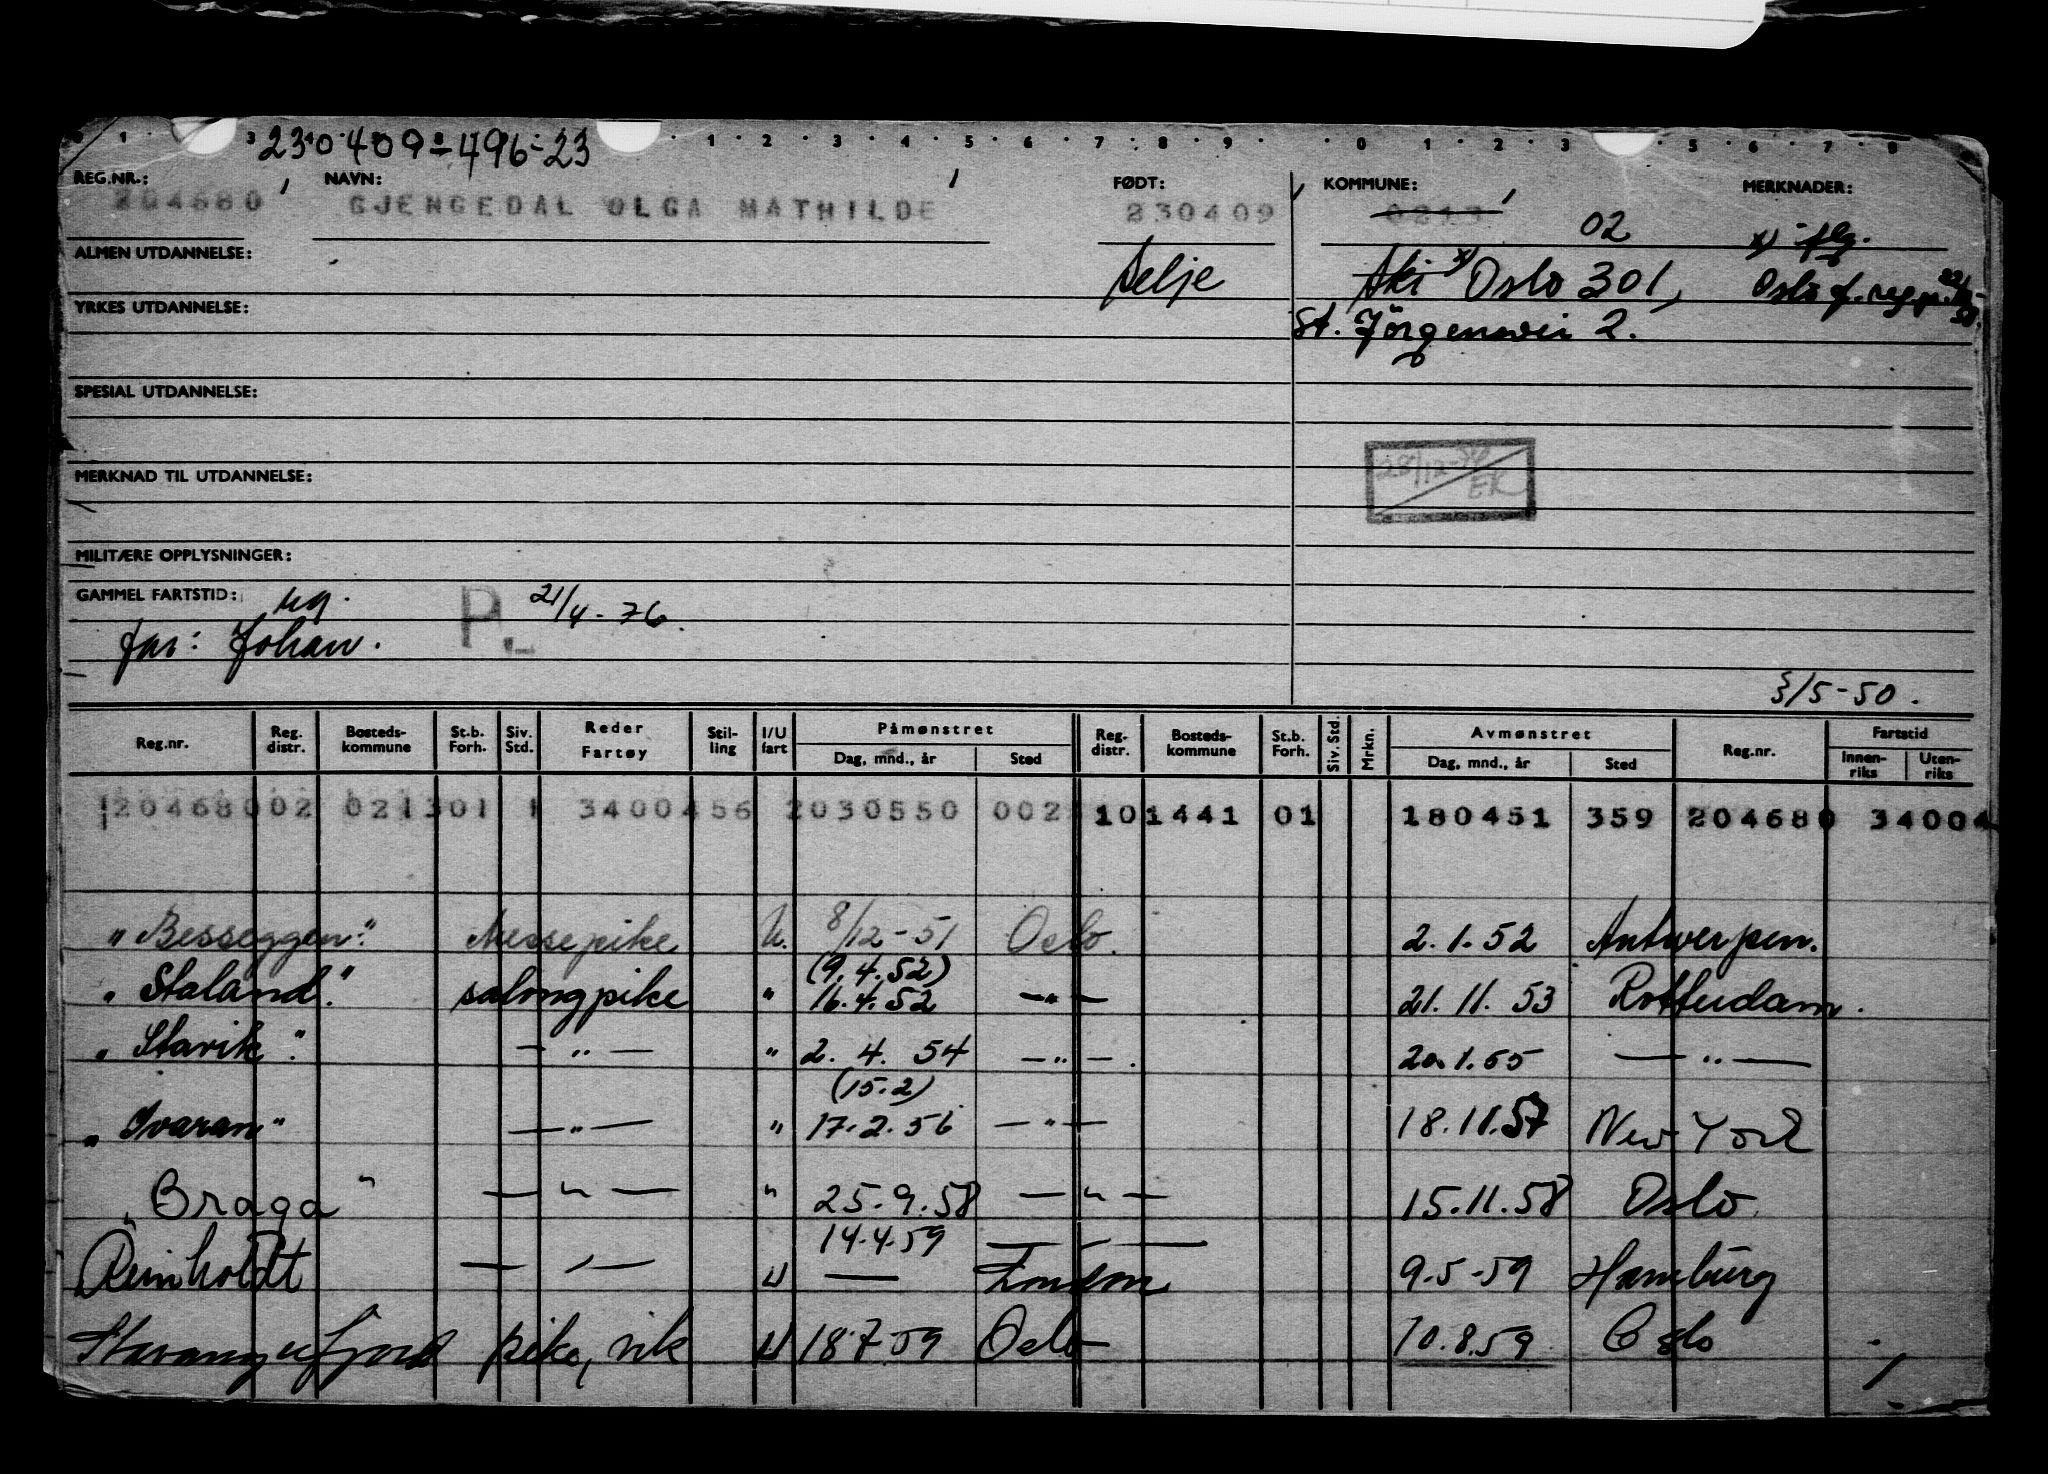 1 3 1 2 3 4 5 6 7 8 9 0 1 2 3 5 6 7 8
230409-496-23
REG.NR.: NAVN: FØDT: KOMMUNE: MERKNADER:
204680 GJENGEDAL OLGA MATHILDE 230409 0213 02 x) flg.
ALMEN UTDANNELSE: Selje Ski x) Oslo 301, Oslo f. reg.
YRKES UTDANNELSE: St. Jörgensvei 2.
SPESIAL UTDANNELSE:
28/12- EK
MERKNAD TIL UTDANNELSE:
MILITÆRE OPPLYSNINGER:
GAMMEL FARTSTID: ug. P. 21/4-76.
far: Johan.
3/5-50.
Reg.nr. Reg. distr. Bosteds-kommune St.b. Forh. Siv. Std. Reder Fartøy Stil-ling I/U fart Påmønstret Dag, mnd., år Sted Reg. distr. Bosteds-kommune St.b. Forh. Siv. Std. Mrkn. Avmønstret Dag, mnd., år Sted Reg.nr. Fartstid Innen-riks Uten-riks
204680 02 0213 01 1 3400456 2 030550 002 10 1441 01 180451 359 204680 34004
"Besseggen". Messepike U. 8/12-51 Oslo. 2.1.52 Antwerpen.
(9.4.52)
"Staland". salongpike " 16.4.52 -"- 21.11.53 Rotterdam.
"Stavik". -"- " 2.4.54 -"-. 20.1.55 -"-
(15.2)
"Ivaran" -"- " 17.2.56 -"- 18.11.57 New York
"Braga" -"- " 25.9.58 -"- 15.11.58 Oslo
14.4.59 -"-
Reinholdt -"- U — London 9.5.59 Hamburg
Stavangerfjord pike, vik U 18.7.59 Oslo 10.8.59 Oslo